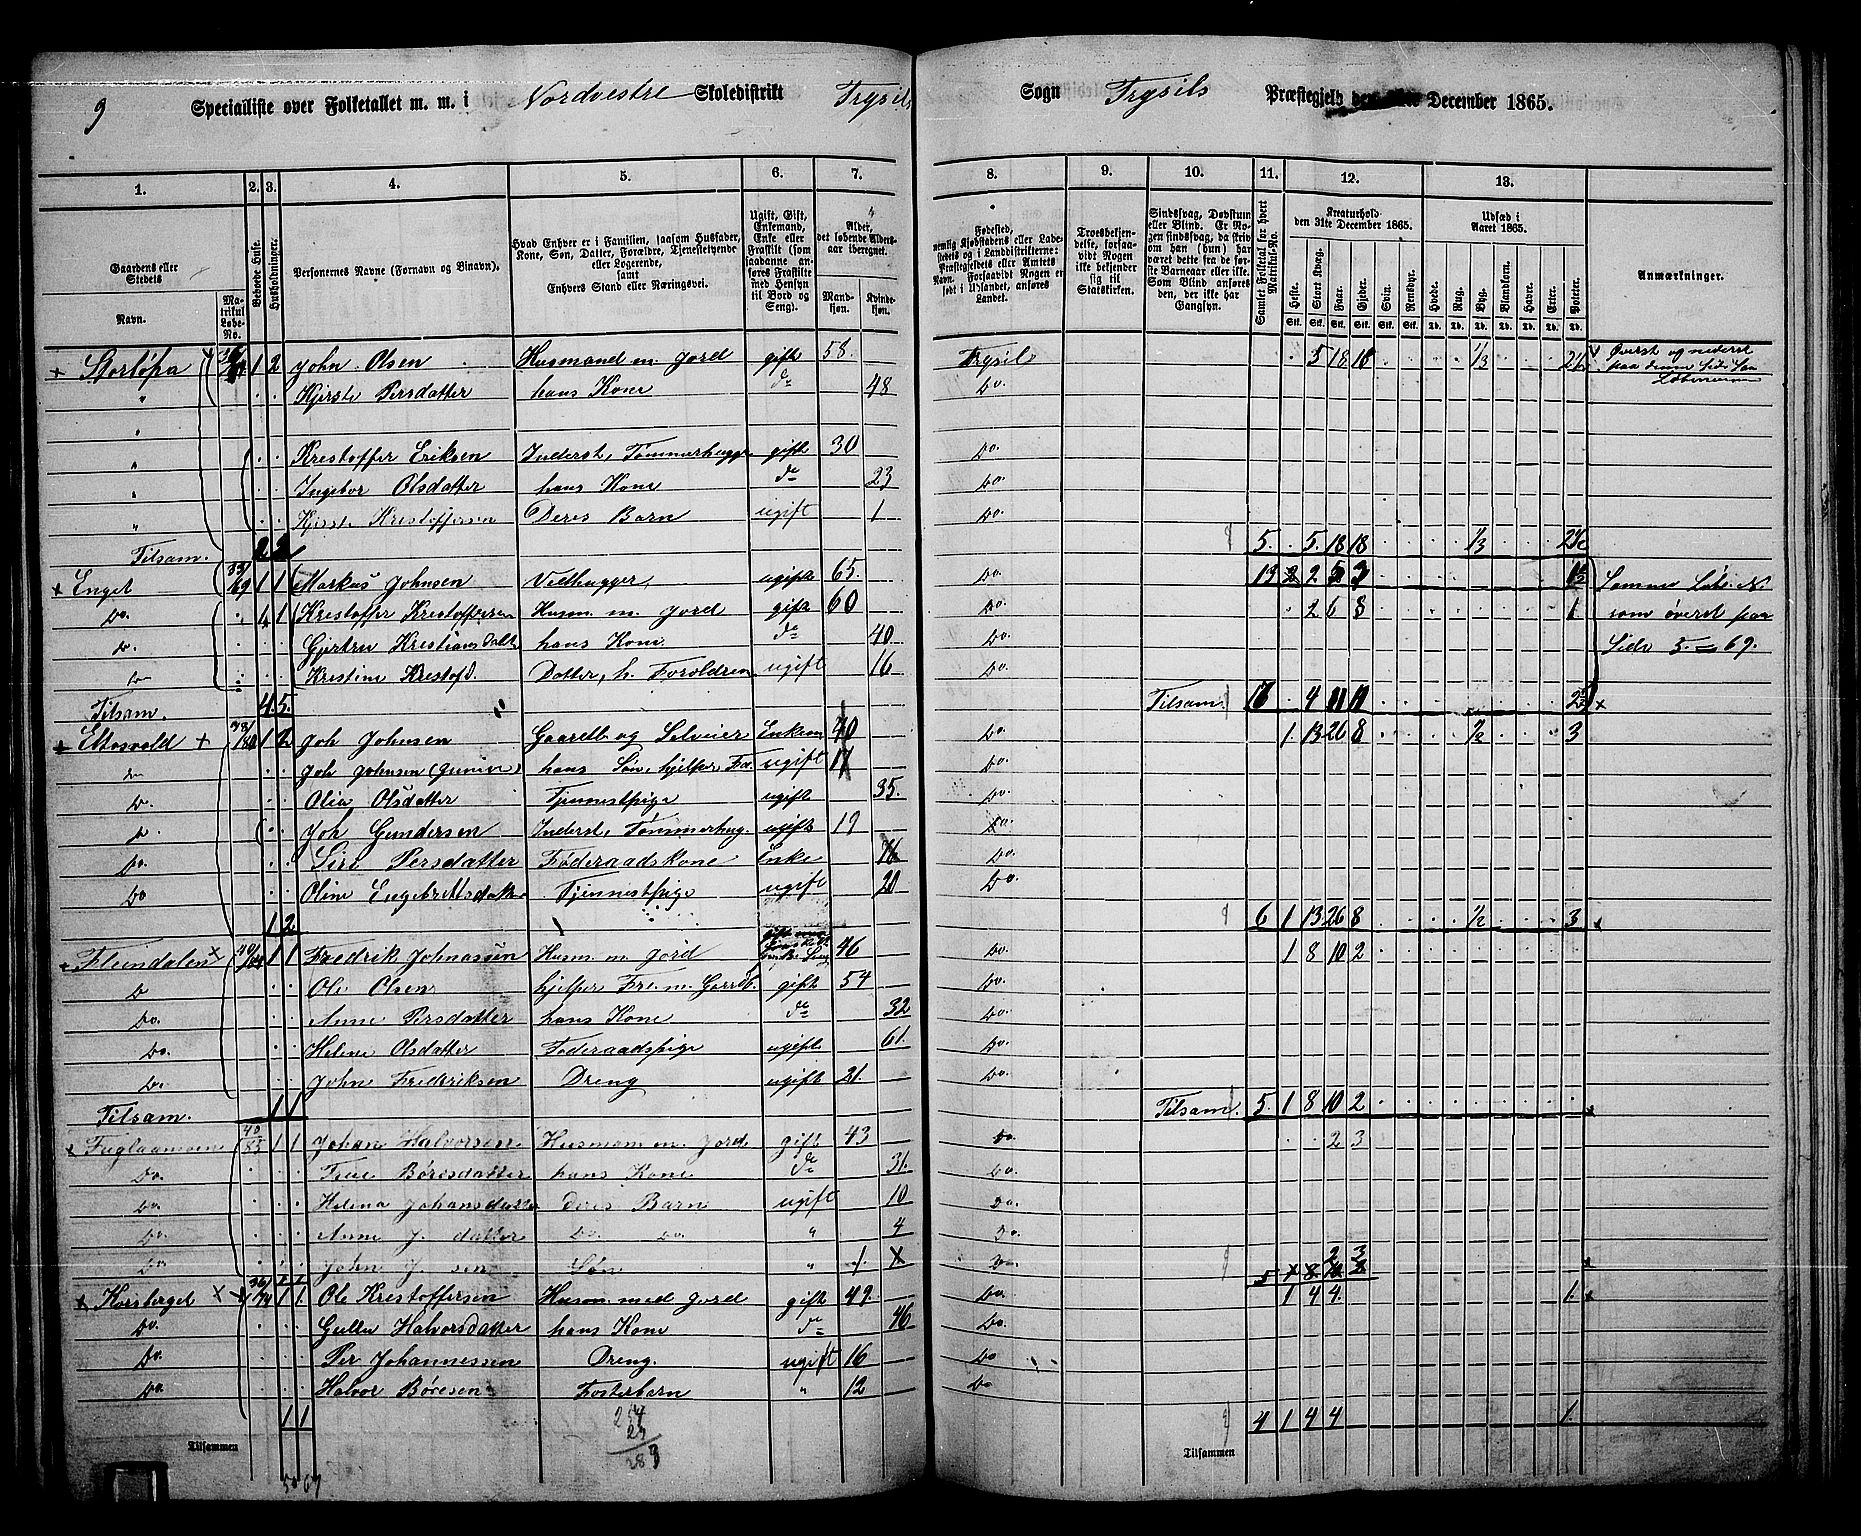 9 Specialliste over Folketallet m. m. i Nordvestre Skoledistrikt Trysils Sogn Trysils Præstegjeld December 1865.
1. 2. 3. 4. 5. 6. 7. 8. 9. 10. 11. 12. 13.
Gaardens eller Stedets Navn.
Matrikul Løbe-No.
Beboede Huse.
Husholdninger.
Personernes Navne (Fornavn og Binavn).
Hvad Enhver er i Familien, saasom Husfader, Kone, Søn, Datter, Forældre, Tjenestetyende eller Logerende, samt Enhvers Stand eller Næringsvei.
Ugift, Gift, Enkemand, Enke eller Fraskilt (som saadanne anføres Fraskilte med Hensyn til Bord og Seng).
Alder, det løbende Aldersaar iberegnet.
Mandkjøn. Kvindekjøn.
Fødested, nemlig Kjøbstadens eller Ladestedets og i Landdistrikterne: Præstegjeldets eller Amtets Navn. Forsaavidt Nogen er født i Udlandet, anføres Landet.
Troesbekjendelse, forsaavidt Nogen ikke bekjender sig til Statskirken.
Sindssvag, Døvstum eller Blind. Er Nogen sindssvag, da skriv om han (hun) har været dette fra de første Barneaar eller ikke. Som Blind anføres den, der ikke har Gangsyn.
Samlet Folketal for hvert Matrikul-No.
Kreaturhold den 31te December 1865.
Heste. Stort Kvæg. Faar. Gjeder. Svin. Rensdyr.
Udsæd i Aaret 1865.
Hvede. Rug. Byg. Blandkorn. Havre. Erter. Poteter.
Anmærkninger.
+ Storløpa 1 2 John Olsen Husmand m. Jord gift 58 Trysil 5 18 18 1/3 Øverst og nederst
" Kjersti Persdatter hans Kone do 48 Do. paa denne Side
" Krestoffer Eriksen Inderst, Tømmerhugger gift 30 Do.
" Ingebor Olsdatter hans Kone do 23 Do.
" Kjersti Krestoffersen Deres Barn ugift 1 Do.
Tilsam. 5 5 18 18 1/3
+ Enget 1 1 Markus Johnsen Vedhugger ugift 65 Do. 13 2 2 5 3 Samme Løbe N
Do. 4 1 Krestoffer Krestoffersen Husm. m. Jord gift 60 Do. 2 6 8 1 som øverst paa
Do. Gjertru Kristians Datt hans Kone do 40 Do. Side 5 = 69.
Do. Kristine Krestofd. Datter, h. Foreldren ugift 16 Do.
Tilsam. 4 5. Tilsam. 4 11 11
+ Eltosvold + 1 2 Joh Johnsen Gaardb og Selveier Enkem 70 Do. 1 13 26 8 1/2 3
Do. Joh Johnsen hans Søn, hjelper Fd. ugift 17 Do.
Do. Olia Olsdatter Tjenestpige ugift 35. Do.
Do. Joh Gundersen Inderst, Tømmerhug. ugift 19 Do.
Do. Siri Persdatter Føderaadskone Enke 76 Do.
Do Oline Engebretsdatter Tjennestpige ugift 20 Do.
1 2 6 1 13 26 8 1/2 3
+ Flendalen x 1 1 Fredrik Johnassen Husm. m. Jord 46 Do. 1 8 10 2
Do Ole Olsen hjelper Fre. m. Gaardb. gift 54 Do.
Do. Anne Persdatter hans Kone do 32 Do.
Do. Helene Olsdatter Føderaadspige ugift 61. Do.
Do. John Frederiksen Dreng ugift 21. Do.
Tilsam. 1 1 Tilsam. 5 1 8 10 2
+ Fuglaamoen 40/85 1 1 Johan Halvorsen Husman m. Jord. gift 43 Do. 2 3
Do. Børesdatter hans Kone do 31. Do.
Do. Helena Johansdatter Deres Barn ugift 10 Do.
Do. Anne J. datter Do. Do. " 4 Do.
Do. John J. sen Søn " 1 Do. 2 3
x Korsberget x 36/74 1 1. Ole Krestoffersen Husm. med Jord gift 49. Do. 1 4 4 1.
Do. Gullu Halvorsdatter hans Kone do 46 Do.
Do. Per Johannessen Dreng. ugift 16 Do
Do. Halvor Børesen Fosterbarn " 12 Do.
1 1 4 1 4 4 1.
Tilsammen Tilsammen